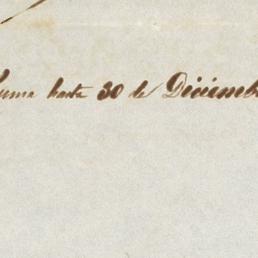 suma hasta 30 de Diciemb